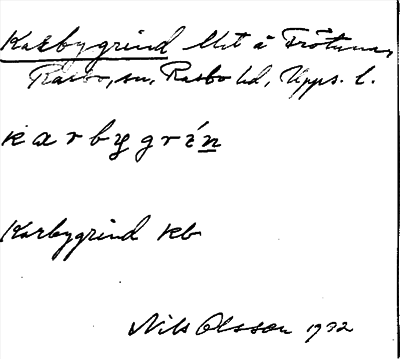 Karbygrind Utt å Frötuna,
Rasbo, sn, Rasbo hd, Upps. l.
karbygrı́n
Karbygrind kb
Nils Olsson 1932